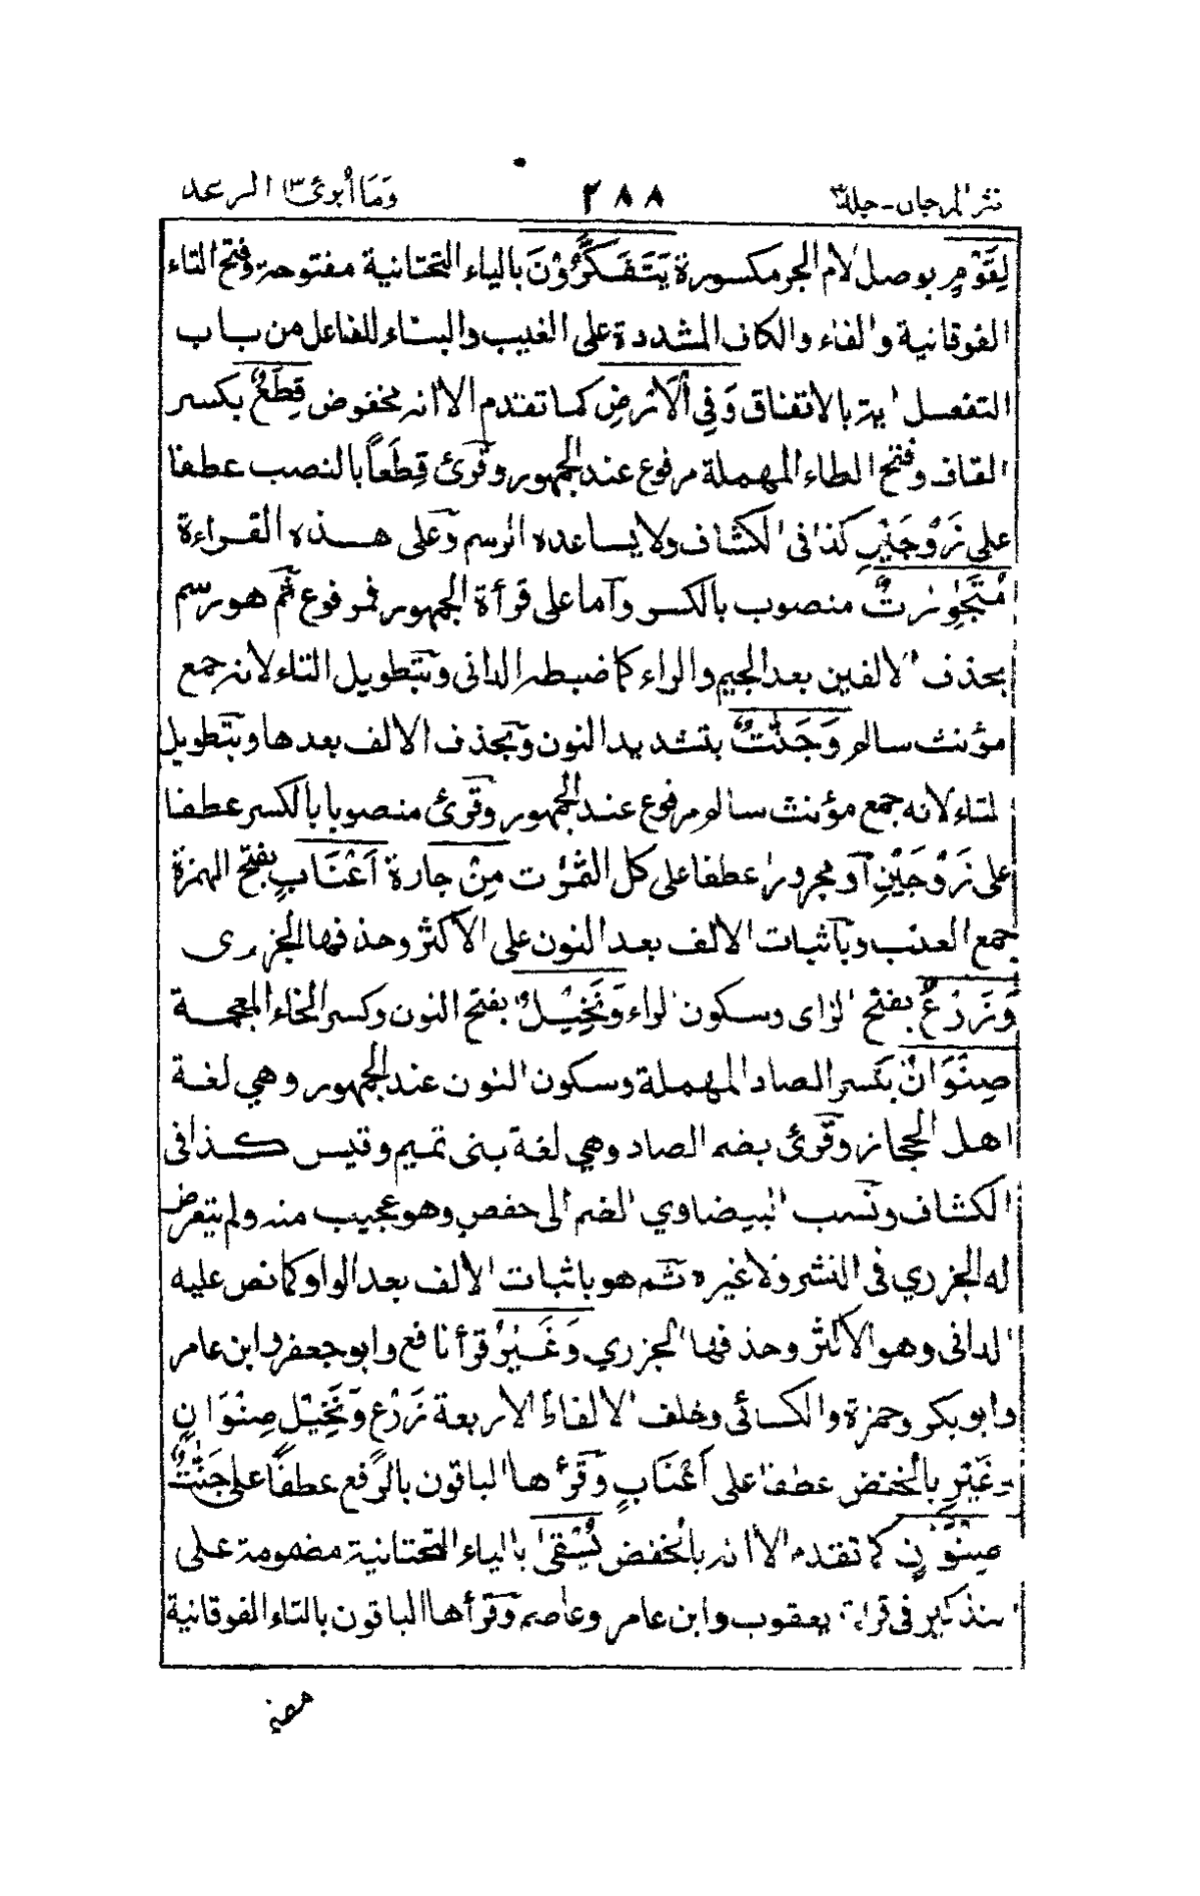 نثر المرجان - جلد ٣ ٢٨٨ وَمَا أُبَرِّئُ ١٣ الرعد
لِقَوْمٍ بوصل لام الجر مكسورة يَتَفَكَّرُوْنَ بالياء التحتانية مفتوحة وفتح التاء
الفوقانية والفاء والكاف المشددة على الغيب والبناء للفاعل من باب
التفعل اية بالاتفاق وَفِي الْاَرْضِ كما تقدم الا انه مخفوض قِطَعٌ بكسر
القاف وفتح الطاء المهملة مرفوع عند الجمهور وقرئ قِطَعاً بالنصب عطفا
على زَوْجَيْنِ كذا فى الكشاف ولا يساعده الرسم وعلى هذه القراءة
مُتَجٰوِرٰتٌ منصوب بالكسر واما على قرأة الجمهور فمرفوع ثم هو رسم
بحذف الالفين بعد الجيم والراء كما ضبطه الدانى وبتطويل التاء لانه جمع
مؤنث سالم وَجَنّٰتٌ بتشديد النون وبحذف الالف بعدها وبتطويل
لتاء لانه جمع مؤنث سالم مرفوع عند الجمهور وقرئ منصوبا بالكسر عطفا
على زَوْجَيْنِ او مجرورا عطفا على كل الثَّمَرٰت مِنْ جارة اَعْنَابٍ بفتح الهمزة
جمع العنب وباثبات الالف بعد النون على الاكثر وحذفها الجزرى
وَزَرْعٌ بفتح الزاى وسكون الراء وَنَخِيْلٌ بفتح النون وكسر الخاء المعجمة
صِنْوَانٌ بكسر الصاد المهملة وسكون النون عند الجمهور وهي لغة
اهل الحجاز وقرئ بضم الصاد وهي لغة بنى تميم وقيس كذا فى
الكشاف ونسب البيضاوي الضم الى حفص وهو عجيب منه ولم يتعرض
له الجزري فى النشر ولا غيره ثم هو باثبات الالف بعد الواو كما نص عليه
الدانى وهو الاكثر وحذفها الجزري وَغَيْرُ قرأ نافع وابو جعفر وابن عامر
وابو بكر وحمزة والكسائى وخلف الالفاظ الاربعة زَرْعٍ وَنَخِيْلٍ صِنْوَانٍ
وغَيْرِ بالخفض عطفا على اَعْنَابٍ وقرأها الباقون بالرفع عطفا على جَنّٰتٌ
صِنْوَانٍ كما تقدم الا انه بالخفض يُسْقٰى بالياء التحتانية مضمومة على
التذكير فى قراءة يعقوب وابن عامر وعاصم وقرأها الباقون بالتاء الفوقانية